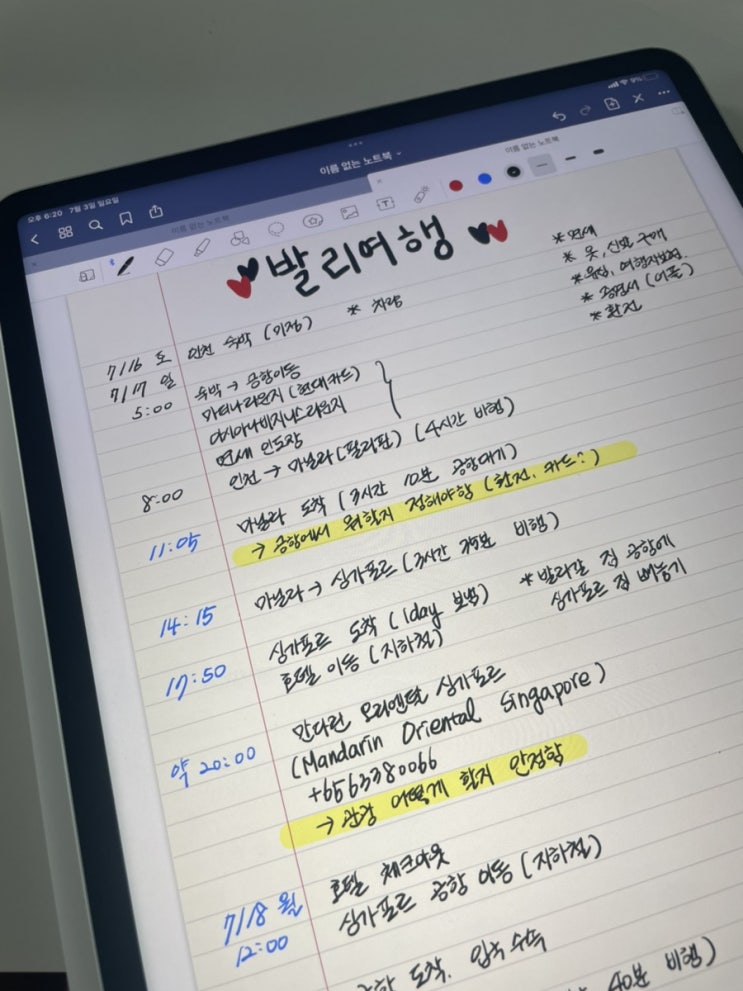 오후 6:20 7월 3일 일요일
9%
이름 없는 노트북
이름 없는 노트북
이름 없는 노트북
발리여행
* 면세
* 옷, 신발 구매
* 유심, 여행자보험
* 증명서 (어플)
* 환전
7/16 토 인천 숙박 (미정) * 차량
7/17 일 숙박 → 공항이동
5:00 마티나라운지 (현대카드)
아시아나비지니스라운지
면세 인도장
8:00 인천 → 마닐라 (필리핀) (4시간 비행)
11:05 마닐라 도착 (3시간 10분 공항대기)
→ 공항에서 뭐할지 정해야함 (환전, 카드?)
14:15 마닐라 → 싱가포르 (3시간 35분 비행)
17:50 싱가포르 도착 (1day 보범)
* 발리갈 짐 공항에
호텔 이동 (지하철)
싱가포르 짐 빼놓기
약 20:00 만다린 오리엔탈 싱가포르
(Mandarin Oriental Singapore)
+6563380066
→ 관광 어떻게 할지 안정함
7/18 월 호텔 체크아웃
12:00 싱가포르 공항 이동 (지하철)
공항 도착, 입국수속
40분 비행)